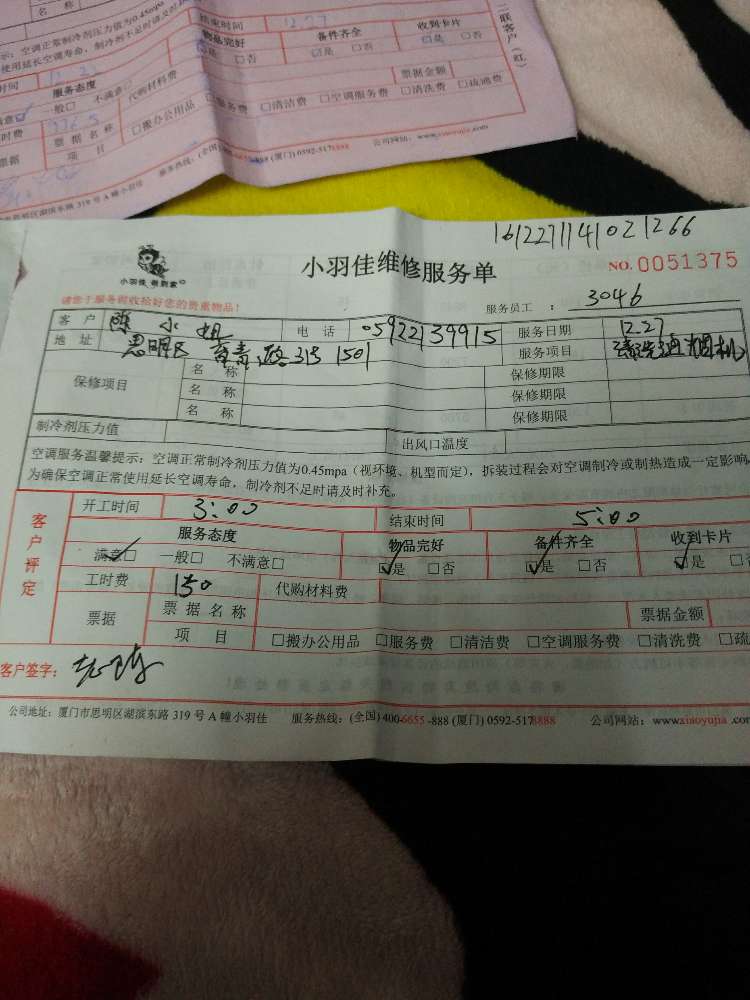 结束时间 12.27
二联客户(红)
物品完好 备件齐全 收到卡片
是 □否 是 □否 是 □否
示:空调正常制冷剂压力值为0.45mpa
使用延长空调寿命,制冷剂不足时请及时
时间
服务态度
一般□ 不满意□ 代购材料费
票据金额
票据名称
□搬办公用品 □服务费 □清洁费 □空调服务费 □清洗费 □疏通费
票据 项 目
319 号 A 幢小羽佳 服务热线:(全国) -888 (厦门) 0592-5178888 公司网站:www.xiaoyujia.com
1612271141021266
小羽佳 帮到家
小羽佳维修服务单
NO.0051375
请您于服务前收拾好您的贵重物品!
服务员工 : 3046
客户 陈小姐 电话 05922139915 服务日期 12.27
地址 思明区 育青路315 1501 服务项目 清洗 烟机
保修项目 名 称 保修期限
名 称 保修期限
名 称 保修期限
制冷剂压力值 出风口温度
空调服务温馨提示:空调正常制冷剂压力值为0.45mpa(视环境、机型而定),拆装过程会对空调制冷或制热造成一定影响
为确保空调正常使用延长空调寿命,制冷剂不足时请及时补充。
客户评定
开工时间 3:00 结束时间 5:00
服务态度 物品完好 备件齐全 收到卡片
满意□ 一般□ 不满意□ ☑是 □否 ☑是 □否 ☑是 □否
工时费 150 代购材料费
票据 票据名称 票据金额
项 目 □搬办公用品 □服务费 □清洁费 □空调服务费 □清洗费 □疏
客户签字:
公司地址:厦门市思明区湖滨东路 319 号 A 幢小羽佳 服务热线:(全国) 400-6655-888 (厦门) 0592-5178888 公司网站:www.xiaoyujia.com